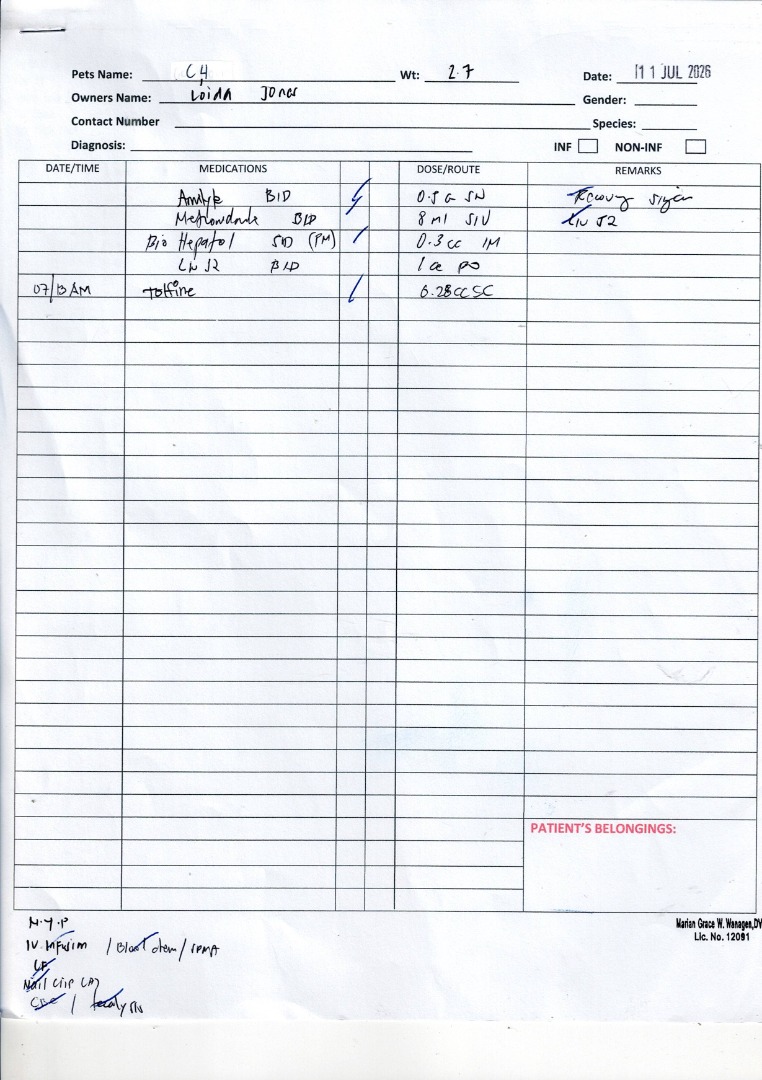 Pets Name: C4 Wt: 2.7 Date: 11 JUL 2026
Owners Name: Loida Gender:
Contact Number Species:
Diagnosis: INF NON-INF
DATE/TIME MEDICATIONS DOSE/ROUTE REMARKS
BID Recovery
BID 8 ml SIV LIV 52
Bio Hepatol SID (PM) 0.3 cc IM
LIV 52 BID 1 cc po
07/13 AM tolfine 0.28cc SC
PATIENT'S BELONGINGS:
Marian Grace W. Wanagen, DV
Lic. No. 12091
IV Infusion / Blood chem /
LF
Nail clip
CBC / fecalysis